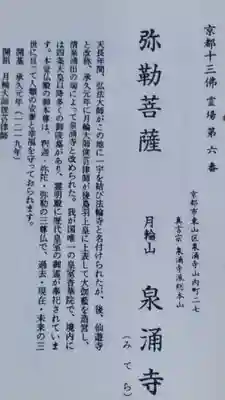 京都十三佛霊場第六番
弥勒菩薩
京都市東山区泉涌寺山内町二七
真言宗 泉涌寺派総本山
月輪山 泉涌寺
(みてら)
天長年間、弘法大師がこの地に一宇を結び法輪寺と名付けられたが、後、仙遊寺
と改称、承久元年に月輪大師俊芿律師が後鳥羽上皇に上表して大伽藍を造営し、
清泉涌出の瑞によって泉涌寺と改められた。我が国唯一の皇室香華院で、境内に
は四条天皇以降多くの御陵墓があり、霊明殿に歴代皇室の御霊が奉祀されていま
す。本堂仏殿の御本尊は、釈迦・弥陀・弥勒の三尊仏で、過去・現在・未来の三
世に亘って人類の安妻と幸福を守っておられます。
開基 承久元年(一二一九年)
開祖 月輪大師俊芿律師